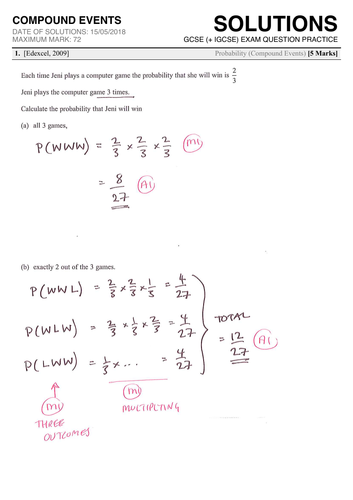 COMPOUND EVENTS
SOLUTIONS
DATE OF SOLUTIONS: 15/05/2018
MAXIMUM MARK: 72
GCSE (+ IGCSE) EXAM QUESTION PRACTICE
1. [Edexcel, 2009]
Probability (Compound Events) [5 Marks]
Each time Jeni plays a computer game the probability that she will win is 2/3
Jeni plays the computer game 3 times.
Calculate the probability that Jeni will win
(a) all 3 games,
P(WWW) = 2/3 × 2/3 × 2/3 M1
= 8/27 A1
(b) exactly 2 out of the 3 games.
P(WWL) = 2/3 × 2/3 × 1/3 = 4/27
P(WLW) = 2/3 × 1/3 × 2/3 = 4/27
P(LWW) = 1/3 × ... = 4/27
TOTAL
= 12/27 A1
M1
THREE
OUTCOMES
M1
MULTIPLYING